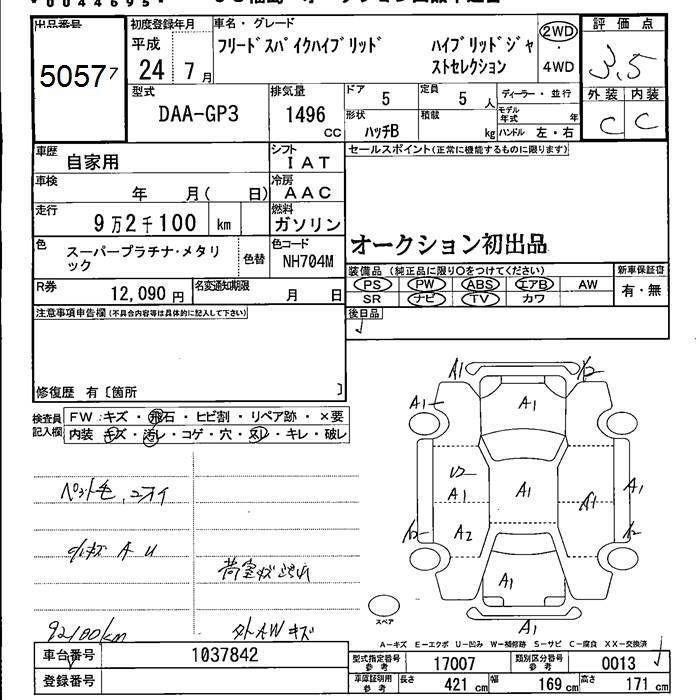 0044695
出品番号
50577
初度登録年月
平成
24 7月
車名・グレード
フリードスパイクハイブリッド ハイブリッドジャストセレクション
2WD
・
4WD
評価点
3.5
外装 内装
C C
型式
DAA-GP3
排気量
1496
CC
ドア
5
定員
5人
形状
ハッチB
積載
kg
ディーラー・並行
モデル年式 年
ハンドル 左・右
車歴
自家用
シフト
IAT
セールスポイント(正常に機能するものに限ります)
車検
年 月( 日)
冷房
AAC
走行
9万2千100 km
燃料
ガソリン
オークション初出品
色
スーパープラチナ・メタリック
色替
色コード
NH704M
装備品 (純正品に限り○をつけてください)
新車保証書
PS PW ABS エアB AW
有・無
SR ナビ TV カワ
R券
12,090円
名変通知期限
月 日
後日品
注意事項申告欄(不具合内容等は具体的に記入して下さい)
修復歴 有〔箇所 〕
検査員記入欄
FW:キズ・飛石・ヒビ割・リペア跡・×要
内装 キズ・汚レ・コゲ・穴・ヌレ・キレ・破レ
ペット毛、ニオイ
A U
92100km
外AWキズ
A1
A1
A1
U2
A1
A1
A1
A1
A2
A1
A1
スペア
A-キズ E-エクボ U-凹み W-補修跡 S-サビ C-腐食 XX-交換済
車台番号
1037842
登録番号
型式指定番号 参考
17007
類別区分番号 参考
0013
車庫証明用 参考
長さ 421cm 幅 169cm 高さ 171cm